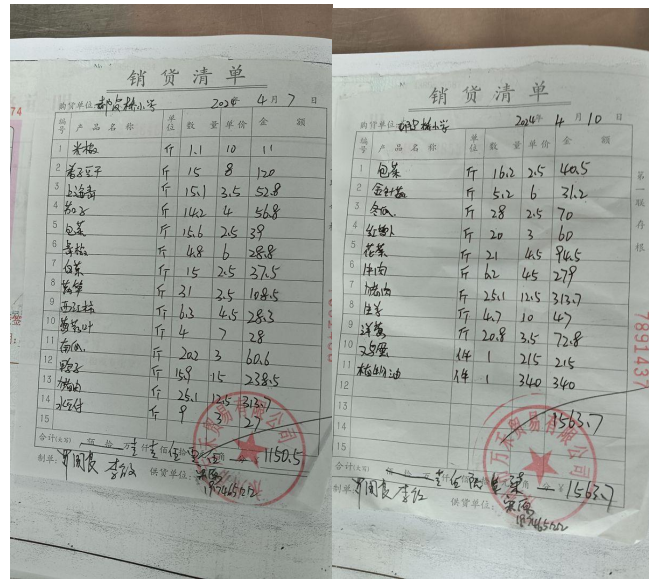 销货清单
购货单位: 小学 2024年 4月 7日
编号 产品名称 单位 数量 单价 金额
1 米椒 斤 1.1 10 11
2 香豆干 斤 15 8 120
3 上海青 斤 15.1 3.5 52.8
4 茄子 斤 14.2 4 56.8
5 包菜 斤 15.6 2.5 39
6 青椒 斤 4.8 6 28.8
7 白菜 斤 15 2.5 37.5
8 莴笋 斤 31 3.5 108.5
9 西红柿 斤 6.3 4.5 28.3
10 斤 4 7 28
11 南瓜 斤 20.2 3 60.6
12 鸭子 斤 15.9 15 238.5
13 猪肉 斤 25.1 12.5 313.7
14 斤 9 3 27
15
合计(大写) 佰 拾 万 仟 佰 拾 1150.5
制单: 供货单位:
销货清单
购货单位: 小学 2024年 4月 10日
编号 产品名称 单位 数量 单价 金额
1 包菜 斤 16.2 2.5 40.5
2 金针菇 斤 5.2 6 31.2
3 冬瓜 斤 28 2.5 70
4 红萝卜 斤 20 3 60
5 花菜 斤 21 4.5 94.5
6 牛肉 斤 6.2 45 279
7 猪肉 斤 25.1 12.5 313.7
8 生姜 斤 4.7 10 47
9 洋葱 斤 20.8 3.5 72.8
10 鸡蛋 件 1 215 215
11 植物油 件 1 340 340
12
13
14 1563.7
15
合计(大写) 佰 拾 万 ¥1563.7
制单: 供货单位:
第一联存根
7891437